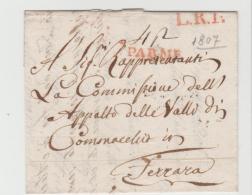 L.R.I.
1807
PARME
A Sig.ri Rappresentanti
La Commissione dell'
Appalto delle Valli di
Commacchio in
Ferrara